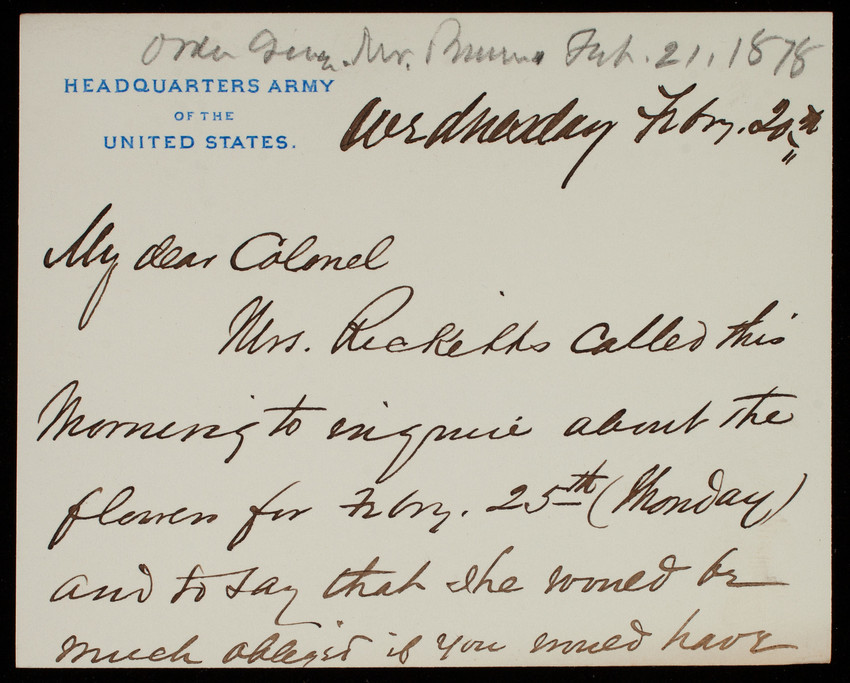 Order given Mr. Brown Feb. 21, 1878
HEADQUARTERS ARMY
OF THE
UNITED STATES.
Wednesday Febry. 20th
My dear Colonel
Mrs. Ricketts called this
Morning to inquire about the
flowers for Febry. 25th (Monday)
and to say that she would be
much obliged if you would have